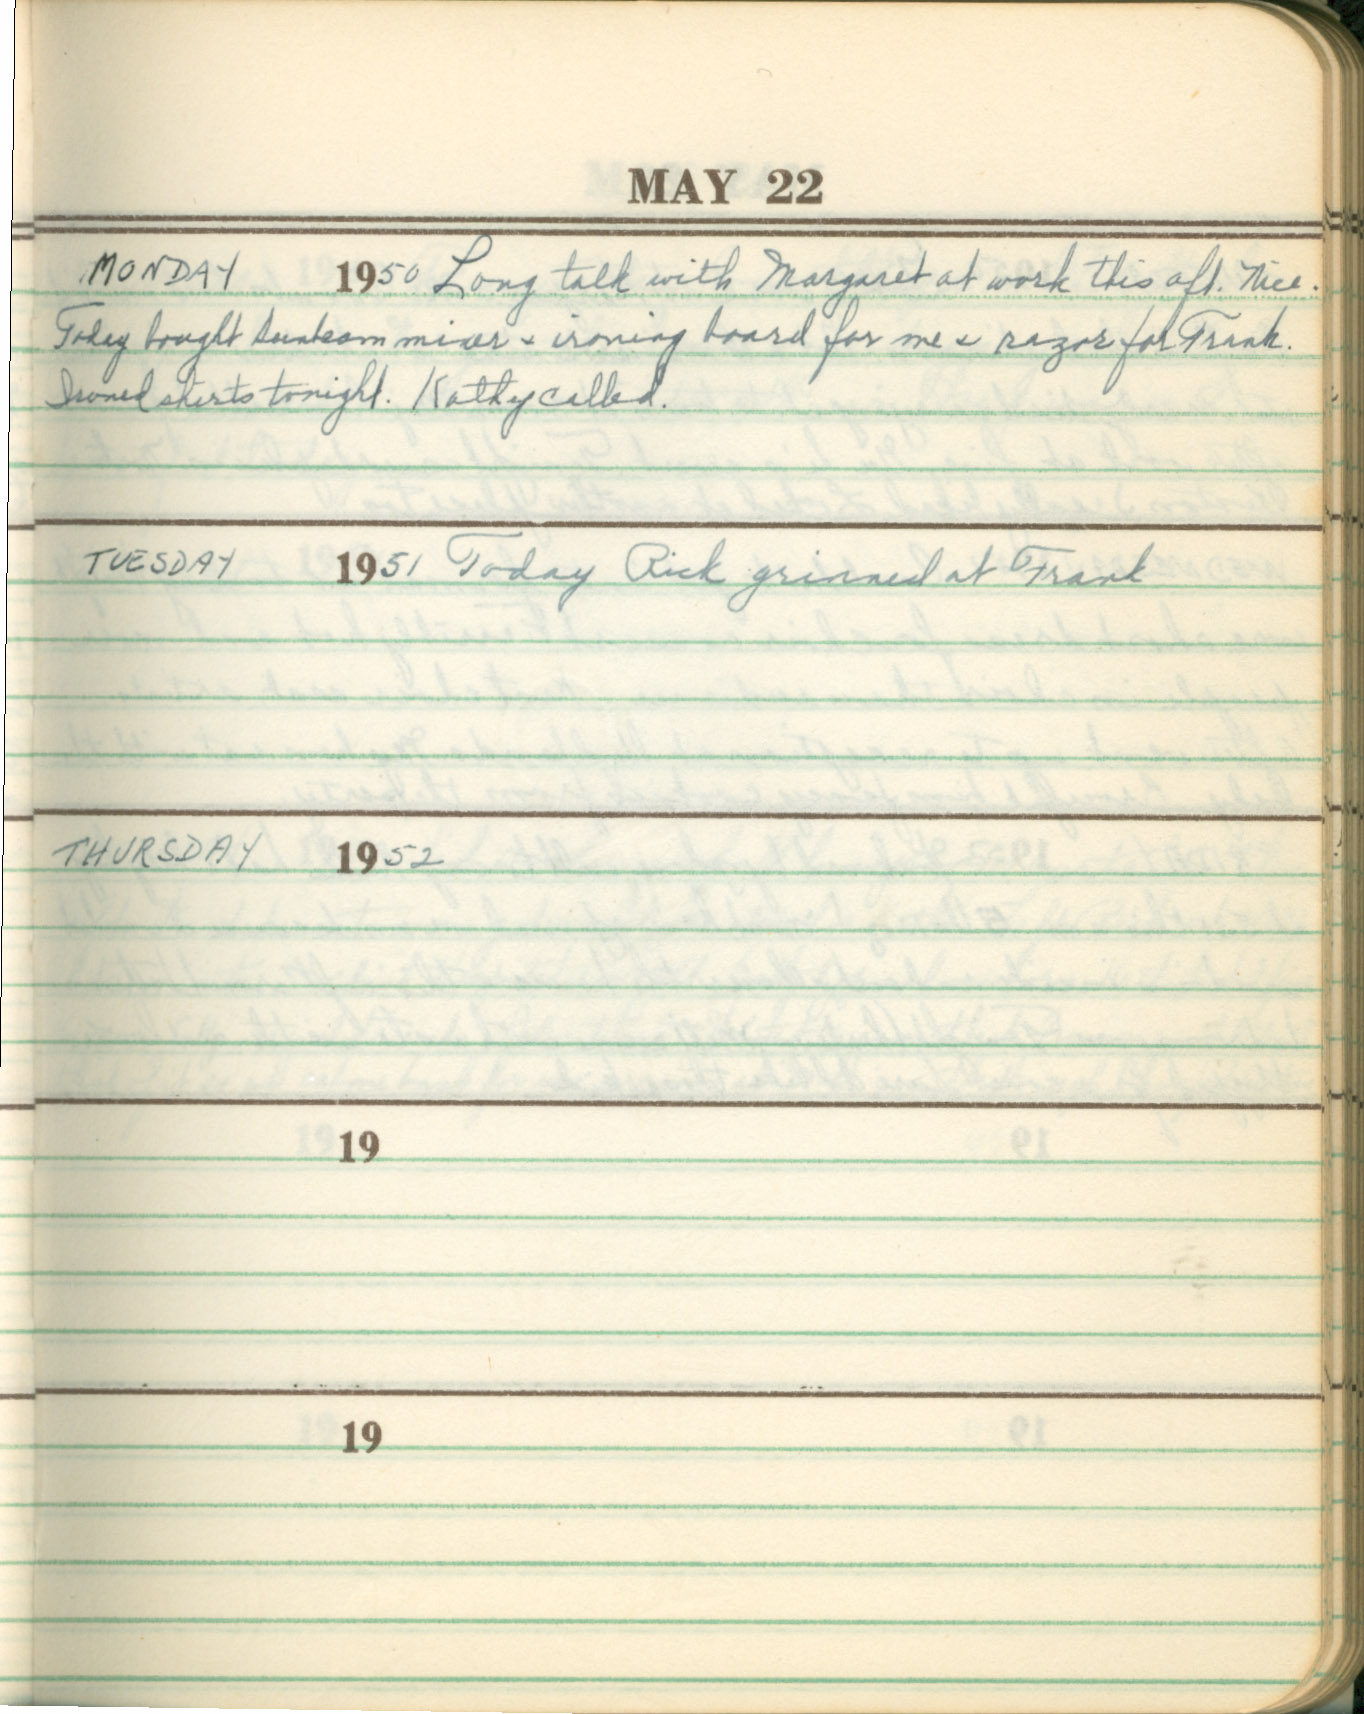 MAY 22
MONDAY 1950 Long talk with Margaret at work this aft. Nice.
Today bought Sunbeam mixer & ironing board for me & razor for Frank.
Ironed shirts tonight. Kathy called.
TUESDAY 1951 Today Rick grinned at Frank
THURSDAY 1952
19
19